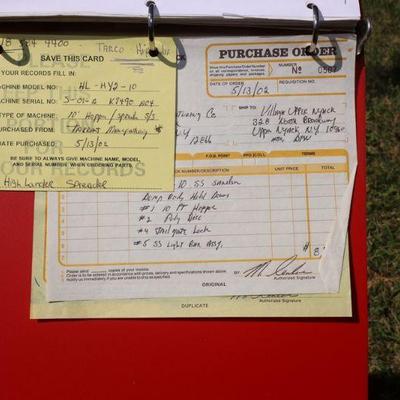 4400
TARCO
SAVE THIS CARD
YOUR RECORDS FILL IN:
MACHINE MODEL NO: HL-HY2-10
MACHINE SERIAL NO:
TYPE OF MACHINE: 10' Hopper / spreader S/S
PURCHASED FROM:
DATE PURCHASED 5/13/02
BE SURE TO ALWAYS GIVE MACHINE NAME, MODEL,
AND SERIAL NUMBER WHEN ORDERING PARTS.
Highlander Spreader
PURCHASE ORDER
Show this Purchase Order Number
on all correspondence, invoices,
shipping papers and packages.
NUMBER
No
DATE 5/13/02
SHIP TO: Village Upper Nyack
328 North Broadway
Upper Nyack, N.Y.
Attn: DPW
F.O.B. POINT
PPD./COLL.
TERMS
STOCK NUMBER/DESCRIPTION
UNIT PRICE
TOTAL
10 SS Sander
Dump Body Hold Downs
#1 10 FT Hopper
#2 Poly Disc
#4 Tailgate Lock
#5 SS Light Bar Assy.
$ 8,
Please send copies of your invoice.
Order is to be entered in accordance with prices, delivery and specifications shown above.
Notify us immediately if you are unable to ship as specified.
Authorized Signature
ORIGINAL
Authorized Signature
DUPLICATE